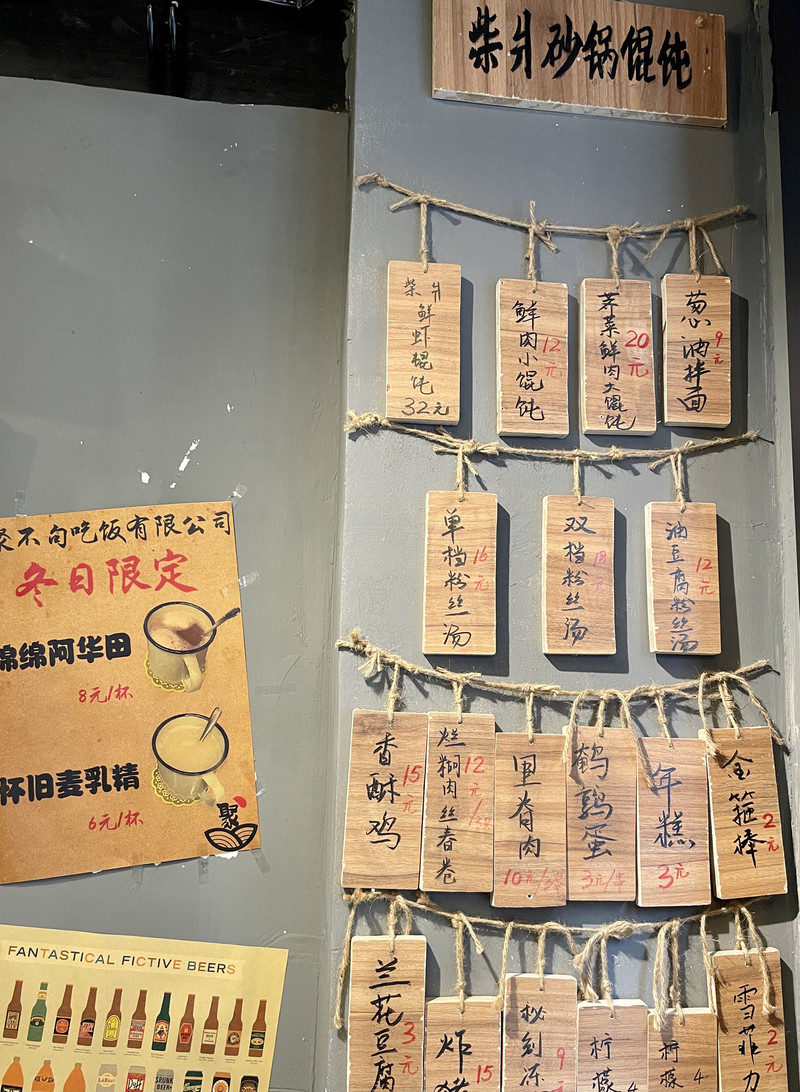 柴爿砂锅馄饨
柴爿鲜虾馄饨
32元
鲜肉小馄饨
12元
荠菜鲜肉大馄饨
20元
葱油拌面
9元
单档粉丝汤
16元
双档粉丝汤
18元
油豆腐粉丝汤
12元
香酥鸡
15元
烂糊肉丝春卷
12元/
里脊肉
10元/3串
鹌鹑蛋
3元/串
年糕
3元
金箍棒
2元
兰花豆腐
3元
炸猪
15
秘制冻
9
柠檬
4
柠檬
4
雪菲力
2元
不句吃饭有限公司
冬日限定
绵绵阿华田
8元/杯
怀旧麦乳精
6元/杯
聚
FANTASTICAL FICTIVE BEERS